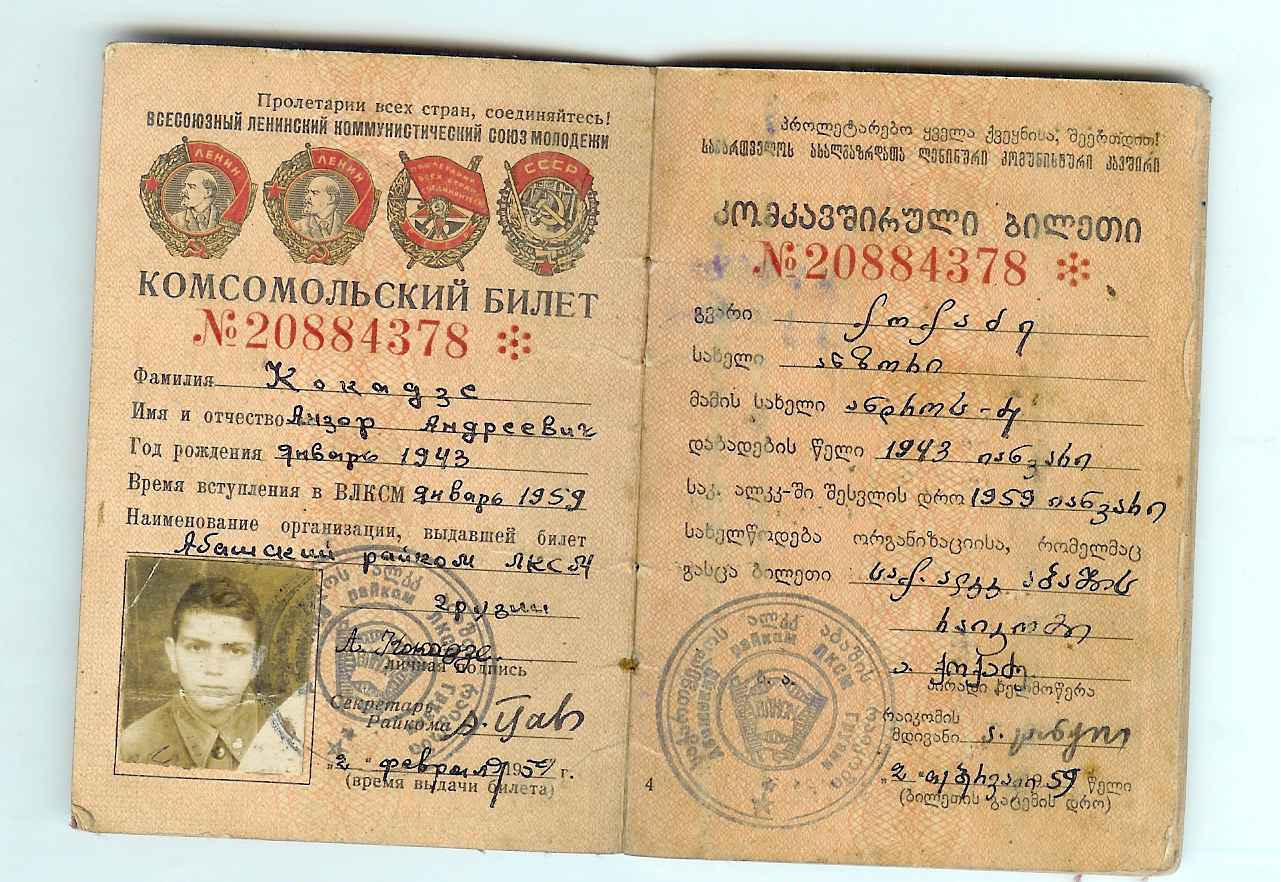 Пролетарии всех стран, соединяйтесь!
ВСЕСОЮЗНЫЙ ЛЕНИНСКИЙ КОММУНИСТИЧЕСКИЙ СОЮЗ МОЛОДЕЖИ
ЛЕНИН ЛЕНИН ПРОЛЕТАРИИ ВСЕХ СТРАН СОЕДИНЯЙТЕСЬ СССР
КОМСОМОЛЬСКИЙ БИЛЕТ
№20884378
Фамилия Кокадзе
Имя и отчество Анзор Андреевич
Год рождения январь 1943
Время вступления в ВЛКСМ январь 1959
Наименование организации, выдавшей билет
Абашский райком ЛКСМ
Грузии
А. Кокадзе
личная подпись
Секретарь
Райкома
„2“ февраля 1959 г.
(время выдачи билета)
პროლეტარებო ყველა ქვეყნისა, შეერთდით!
საქართველოს ახალგაზრდათა ლენინური კომუნისტური კავშირი
კომკავშირული ბილეთი
№20884378
გვარი ქოქაძე
სახელი ანზორი
მამის სახელი ანდროს-ძე
დაბადების წელი 1943 იანვარი
საკ. ალკკ-ში შესვლის დრო 1959 იანვარი
სახელწოდება ორგანიზაციისა, რომელმაც
გასცა ბილეთი საქ. ალკკ აბაშის
რაიკომი
ა. ქოქაძე
პირადი ხელმოწერა
რაიკომის
მდივანი
„2“ თებერვალი 1959 წელი
(ბილეთის გაცემის დრო)
4